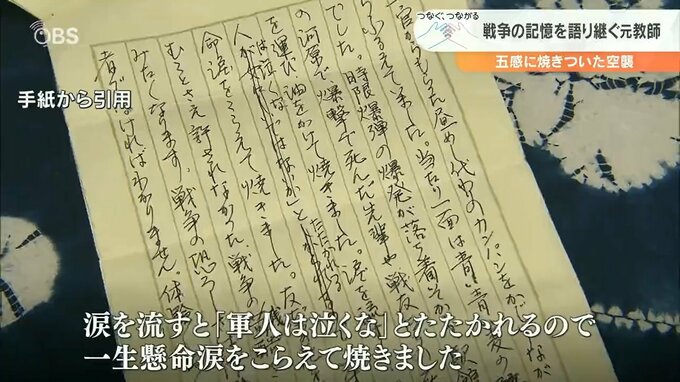 OBS
つなぐ、つながる
戦争の記憶を語り継ぐ元教師
五感に焼きついた空襲
手紙から引用
官からもらった昼め 代わりのカンパンをか なが
らふるえていました。当たり一面は青い青
でした。時限爆弾の爆発が落ち着いてか
の河原で、爆撃で死んだ先輩や戦友
を運び油をかけて焼きました。涙を流
は泣くな ではないか」とたたかれる
命涙をこらえて焼きました。友
さえ許されなかった戦争の
みたくなります。戦争の恐ろ
者でなければわかりません。体
涙を流すと「軍人は泣くな」とたたかれるので
一生懸命涙をこらえて焼きました